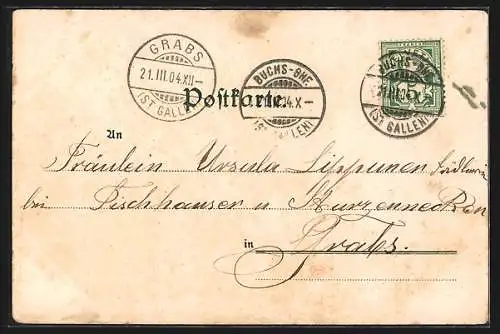 GRABS
21.III.04.XII-
(ST. GALLEN)
BUCHS-BHF.
04.X-
(ST. GALLEN)
BUCHS-BHF.
(ST. GALLEN)
5
Postkarte.
An
Fräulein Ursula Lippuner
bei Tischhauser u
in Grabs.